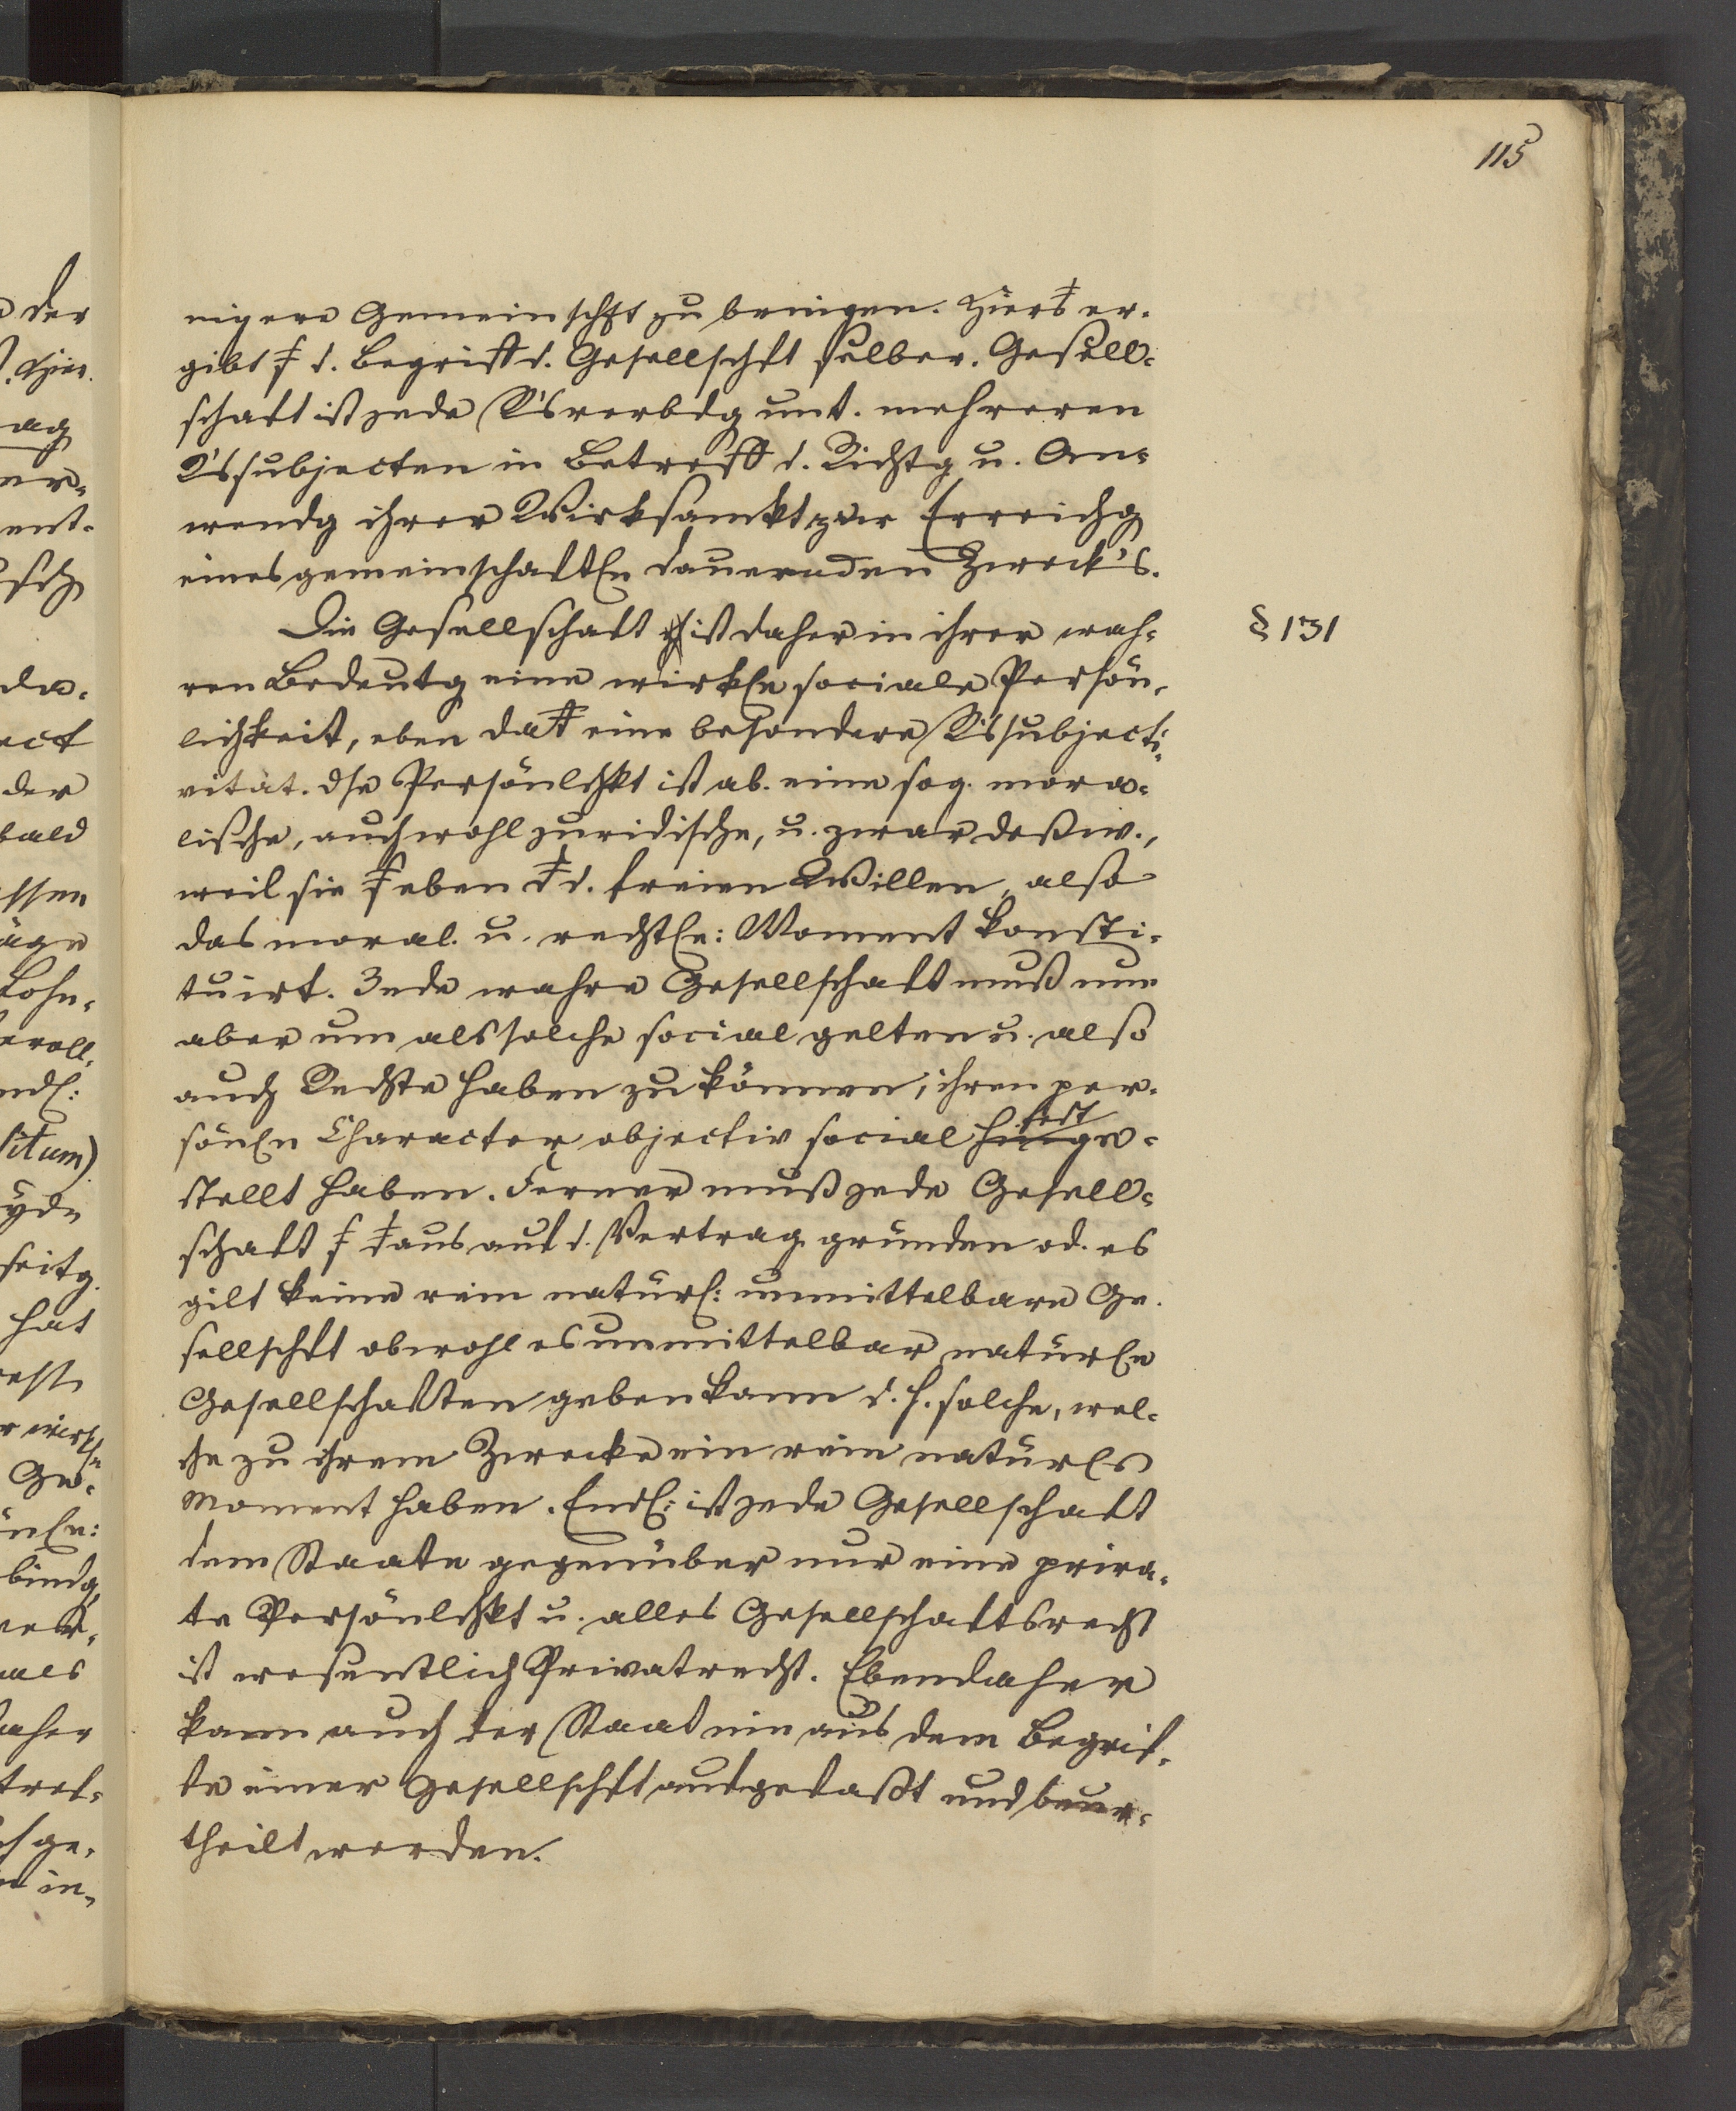 115
nigere Gemeinschft zu bringen. Hiers er-
gibt s. d. Begriff d. Gesellschft selber. Gesell-
schaft ist jede R'sverbdg unt. mehreren
R'ssubjecten in Betreff d. Richtg u. An-
wendg ihrer Wirksamkt zur Erreichg
eines gemeinschaftln dauernden Zweck's.
Die Gesellschaft ist daher in ihrer wah- § 131
ren Bedeutg eine wirkle sociale Persön-
lichkeit, eben eine besondere R'ssubjecti-
vität. Dse Persönlchkt ist ab. eine sog. mora-
lische, auch wohl juridische, u. zwar deßw.,
weil sie eben d. freien Willen, also
das moral. u. rechtle: Moment consti-
tuirt. Jede wahre Gesellschaft muß nun
aber um als solche social gelten u. also
auch Rechte haben zu können, ihren per-
sönln Character objectiv social hinge- fest
stellt haben. Ferner muß jede Gesell-
schaft aus auf d. Vertrag gründen od. es
gilt keine rein natürl: unmittelbare Ge-
sellschft obwohl es unmittelbar natürle
Gesellschaften geben kann d. h. solche, wel-
che zu ihrem Zwecke ein rein natürls
Moment haben. Endl: ist jede Gesellschaft
dem Staate gegenüber nur eine priva-
te Persönlchkt u. alles Gesellschaftsrecht
ist wesentlich Privatrecht. Ebendaher
kann auch der Staat nie aus dem Begrif-
fe einer Gesellschft aufgefaßt und beur-
theilt werden.